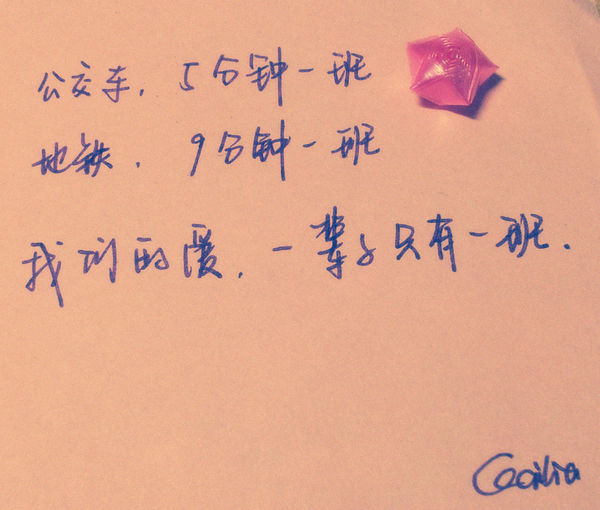 公交车,5分钟一班
地铁,9分钟一班
我们的爱,一辈子只有一班.
Cecilia